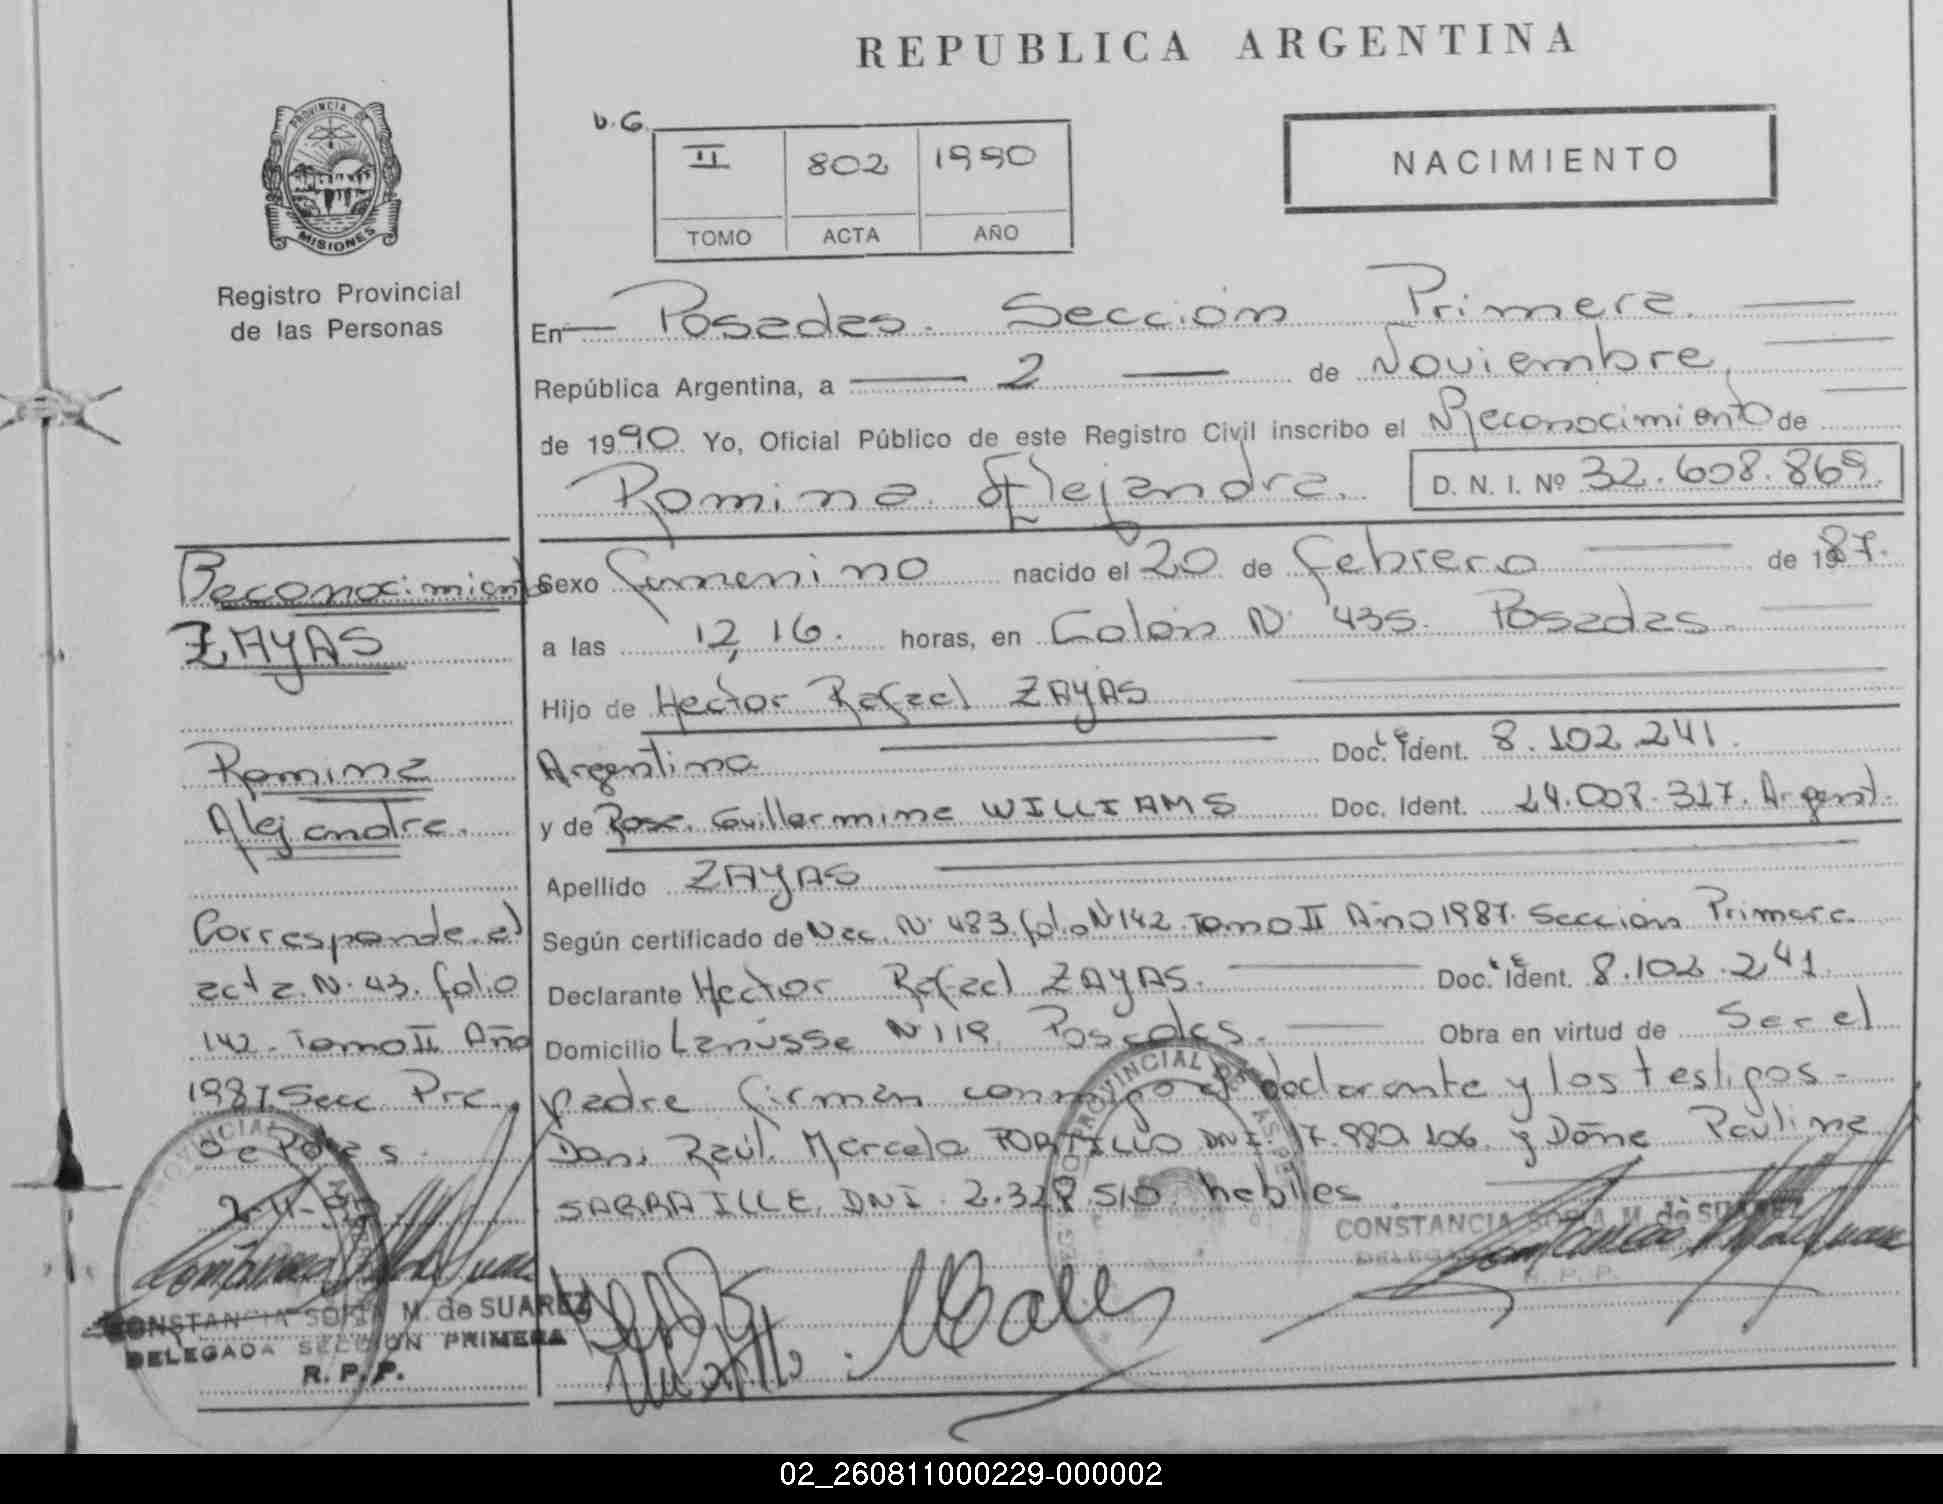 REPUBLICA ARGENTINA
PROVINCIA DE
MISIONES
Registro Provincial
de las Personas
v. G.
II 802 1990
TOMO ACTA AÑO
NACIMIENTO
En Posadas. Sección Primera.
República Argentina, a 2 de Noviembre,
de 1990 Yo, Oficial Público de este Registro Civil inscribo el Reconocimiento de
Romina Alejandra. D. N. I. Nº 32.608.869.
Sexo femenino nacido el 20 de febrero de 1987.
a las 12,16. horas, en Colón N. 435. Posadas.
Hijo de Hector Rafael ZAYAS
Argentina Doc. Ident. 8.102.241.
y de Rosa Guillermina WILLIAMS Doc. Ident. 14.008.317. Argent.
Apellido ZAYAS
Según certificado de Nac. N. 483. folo N 142. Tomo II Año 1987. Sección Primera
Declarante Hector Rafael ZAYAS. Doc. Ident. 8.102.241.
Domicilio Lanusse N 119. Posadas. Obra en virtud de Ser el
padre firman conmigo el declarante y los testigos
Don. Raúl. Marcelo PORTILLO DNI. 17.980.106. y Doñe Paulina
SARRAILLE. DNI. 2.328.510. habiles
CONSTANCIA SORIA M. de SUAREZ
R. P. P.
Reconocimiento
ZAYAS
Romina
Alejandra.
Corresponde al
acta N. 43. folo
142. Tomo II Año
1987. Secc Pra.
de Pdas.
2-11-90
CONSTANCIA SORIA M. de SUAREZ
DELEGADA SECCION PRIMERA
R. P. P.
02_260811000229-000002